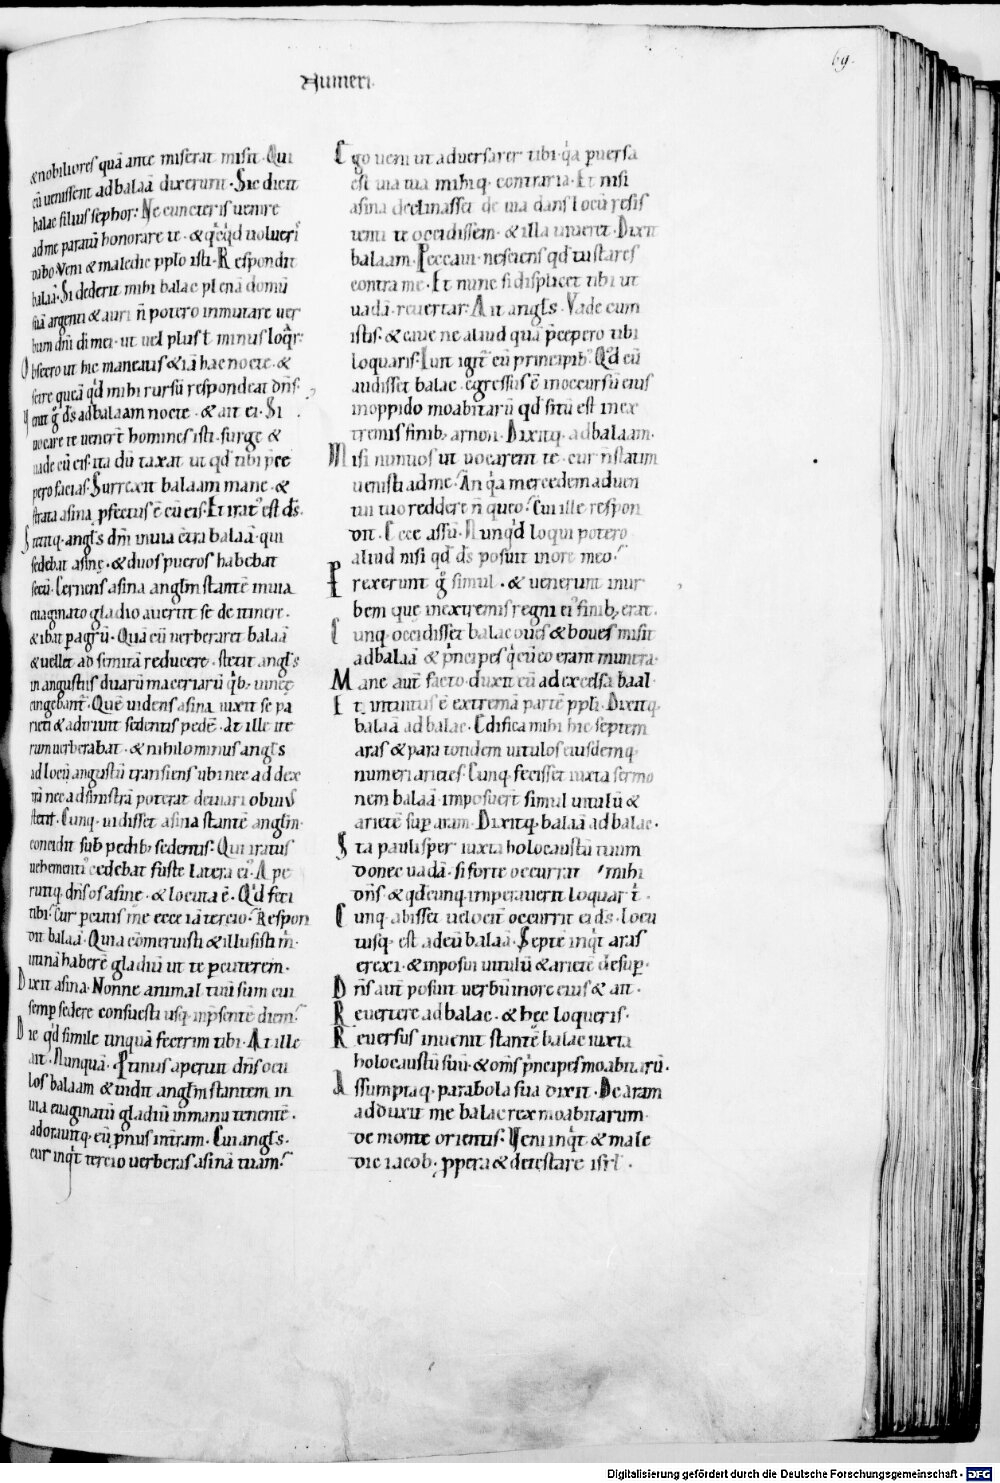 Numeri.
69.
& nobiliores quā ante miserat misit. Qui
cū uenissent ad balaā dixerunt. Sic dicit
balac filius sephor: Ne cuncteris uenire
ad me paratū honorare te. & qͥcqͥd uoluerī
dabo. Veni & maledic pplo isti. Respondit
balaā. Si dederit mihi balac plenā domū
suā argenti & auri ñ potero inmutare uer
bum dn̄i di mei. ut uel plus ł minus loqͣr.
Obsecro ut hic maneatis & iā hac nocte. &
scire queā qͥd mihi rursū respondeat dn̄s.
Venit g̊ d̄s ad balaam nocte. & ait ei. Si
uocare te uener̄t homines isti. surge &
uade cū eis. ita dū taxat ut qd̄ tibi p̄ce
pero facias. Surrexit balaam mane. &
strata asina. pfectus ē cū eis. Et irat᾽ est d̄s.
Stetitq. angl̄s dn̄i in uia c̄tra balaā. qui
sedebat asinę. & duos pueros habebat
secū. Cernens asina angl̄m stantē in uia
euaginato gladio auertit se de itinere.
& ibat p agrū. Quā cū uerberaret balaā
& uellet ad semitā reducere. stetit angl̄s
in angustiis duarū maceriarū qͥb; uineę
cingebant᾽. Quē uidens asina. iuxit se pa
rieti & adtriuit sedentis pedē. At ille ite
rum uerberabat. & nihilominus angl̄s
ad locū angustū transiens ubi nec ad dex
trā nec ad sinistrā poterat deuiari obuiꝰ
stetit. Cunq. uidisset asina stantē angl̄m.
concidit sub pedib; sedentis. Qui iratus
uehementi᾽ cedebat fuste latera ei᾽. Ape
ruitq. dn̄s os asinę. & locuta ē. Qͥd feci
tibi? Cur pcutis me ecce iā tercio? Respon
dit balaā. Quia cōmeruisti & illusisti m̄.
utinā haberē gladiū ut te pcuterem.
Dixit asina. Nonne animal tuū sum cui
semp sedere consuesti usq. in p̄sentē diem?
Dic qͥd simile unquā fecerim tibi. At ille
ait. Nunquā. Ptinus aperuit dn̄s ocu
los balaam & uidit angl̄m stantem in
uia euaginatū gladiū in manu tenentē.
adorauitq. eū pnus in tr̄am. Cui angl̄s.
cur inqͥt tercio uerberas asinā tuam?
Ego ueni ut aduersarer tibi. qͣ puersa
est uia tua mihiq. contraria. Et nisi
asina declinasset de uia dans locū resis
tenti te occidissem. & illa uiueret. Dixit
balaam. Peccaui. nesciens qd̄ tu stares
contra me. Et nunc si displicet tibi ut
uadā. reuertar. Ait angl̄s. Vade cum
istis. & caue ne aliud quā p̄cepero tibi
loquaris. Iuit igit᾽ cū principib;. Qd̄ cū
audisset balac. egressus ē in occursū eius
in oppido moabitarū qd̄ sitū est in ex
tremis finib; arnon. Dixitq. ad balaam.
Misi nuntios ut uocarem te. cur ñ statim
uenisti ad me? An qͣ mercedem aduen
tui tuo reddere ñ queo? Cui ille respon
dit. Ecce assū. Nunqͥd loqui potero
aliud nisi qd̄ d̄s posuit in ore meo?
Prexerunt g̊ simul. & uenerunt in ur
bem quę in extremis regni ei᾽ finib; erat.
Cunq. occidisset balac oues & boues misit
ad balaā & p̄ncipes qͥ cū eo erant munera.
Mane aut̄ facto duxit eū ad excelsa baal.
Et intuitus ē extremā partē ppli. Dixitq.
balaā ad balac. Edifica mihi hic septem
aras & para totidem uitulos eiusdemq.
numeri arietes. Cunq. fecisset iuxta sermo
nem balaā. imposuer̄t simul uitulū &
arietē sup aram. Dixitq. balaā ad balac.
Sta paulisper iuxta holocaustū tuum
donec uadā. si forte occurrat mihi
dn̄s. & qdcunq. imperauerit loquar t̄.
Cunq. abisset uelocit᾽ occurrit ei d̄s. Locu
tusq. est ad eū balaā. Septē inqͥt aras
erexi. & imposui uitulū & arietē desup.
Dn̄s aut̄ posuit uerbū in ore eius & ait.
Reuertere ad balac. & hęc loqueris.
Reuersus inuenit stantē balac iuxta
holocaustū suū. & om̄s p̄ncipes moabitarū.
Assumptaq. parabola sua dixit. De aram
adduxit me balac rex moabitarum.
de monte orientis. Veni inqͥt & male
dic iacob. ppera & detestare isrl̄.
Digitalisierung gefördert durch die Deutsche Forschungsgemeinschaft - DFG